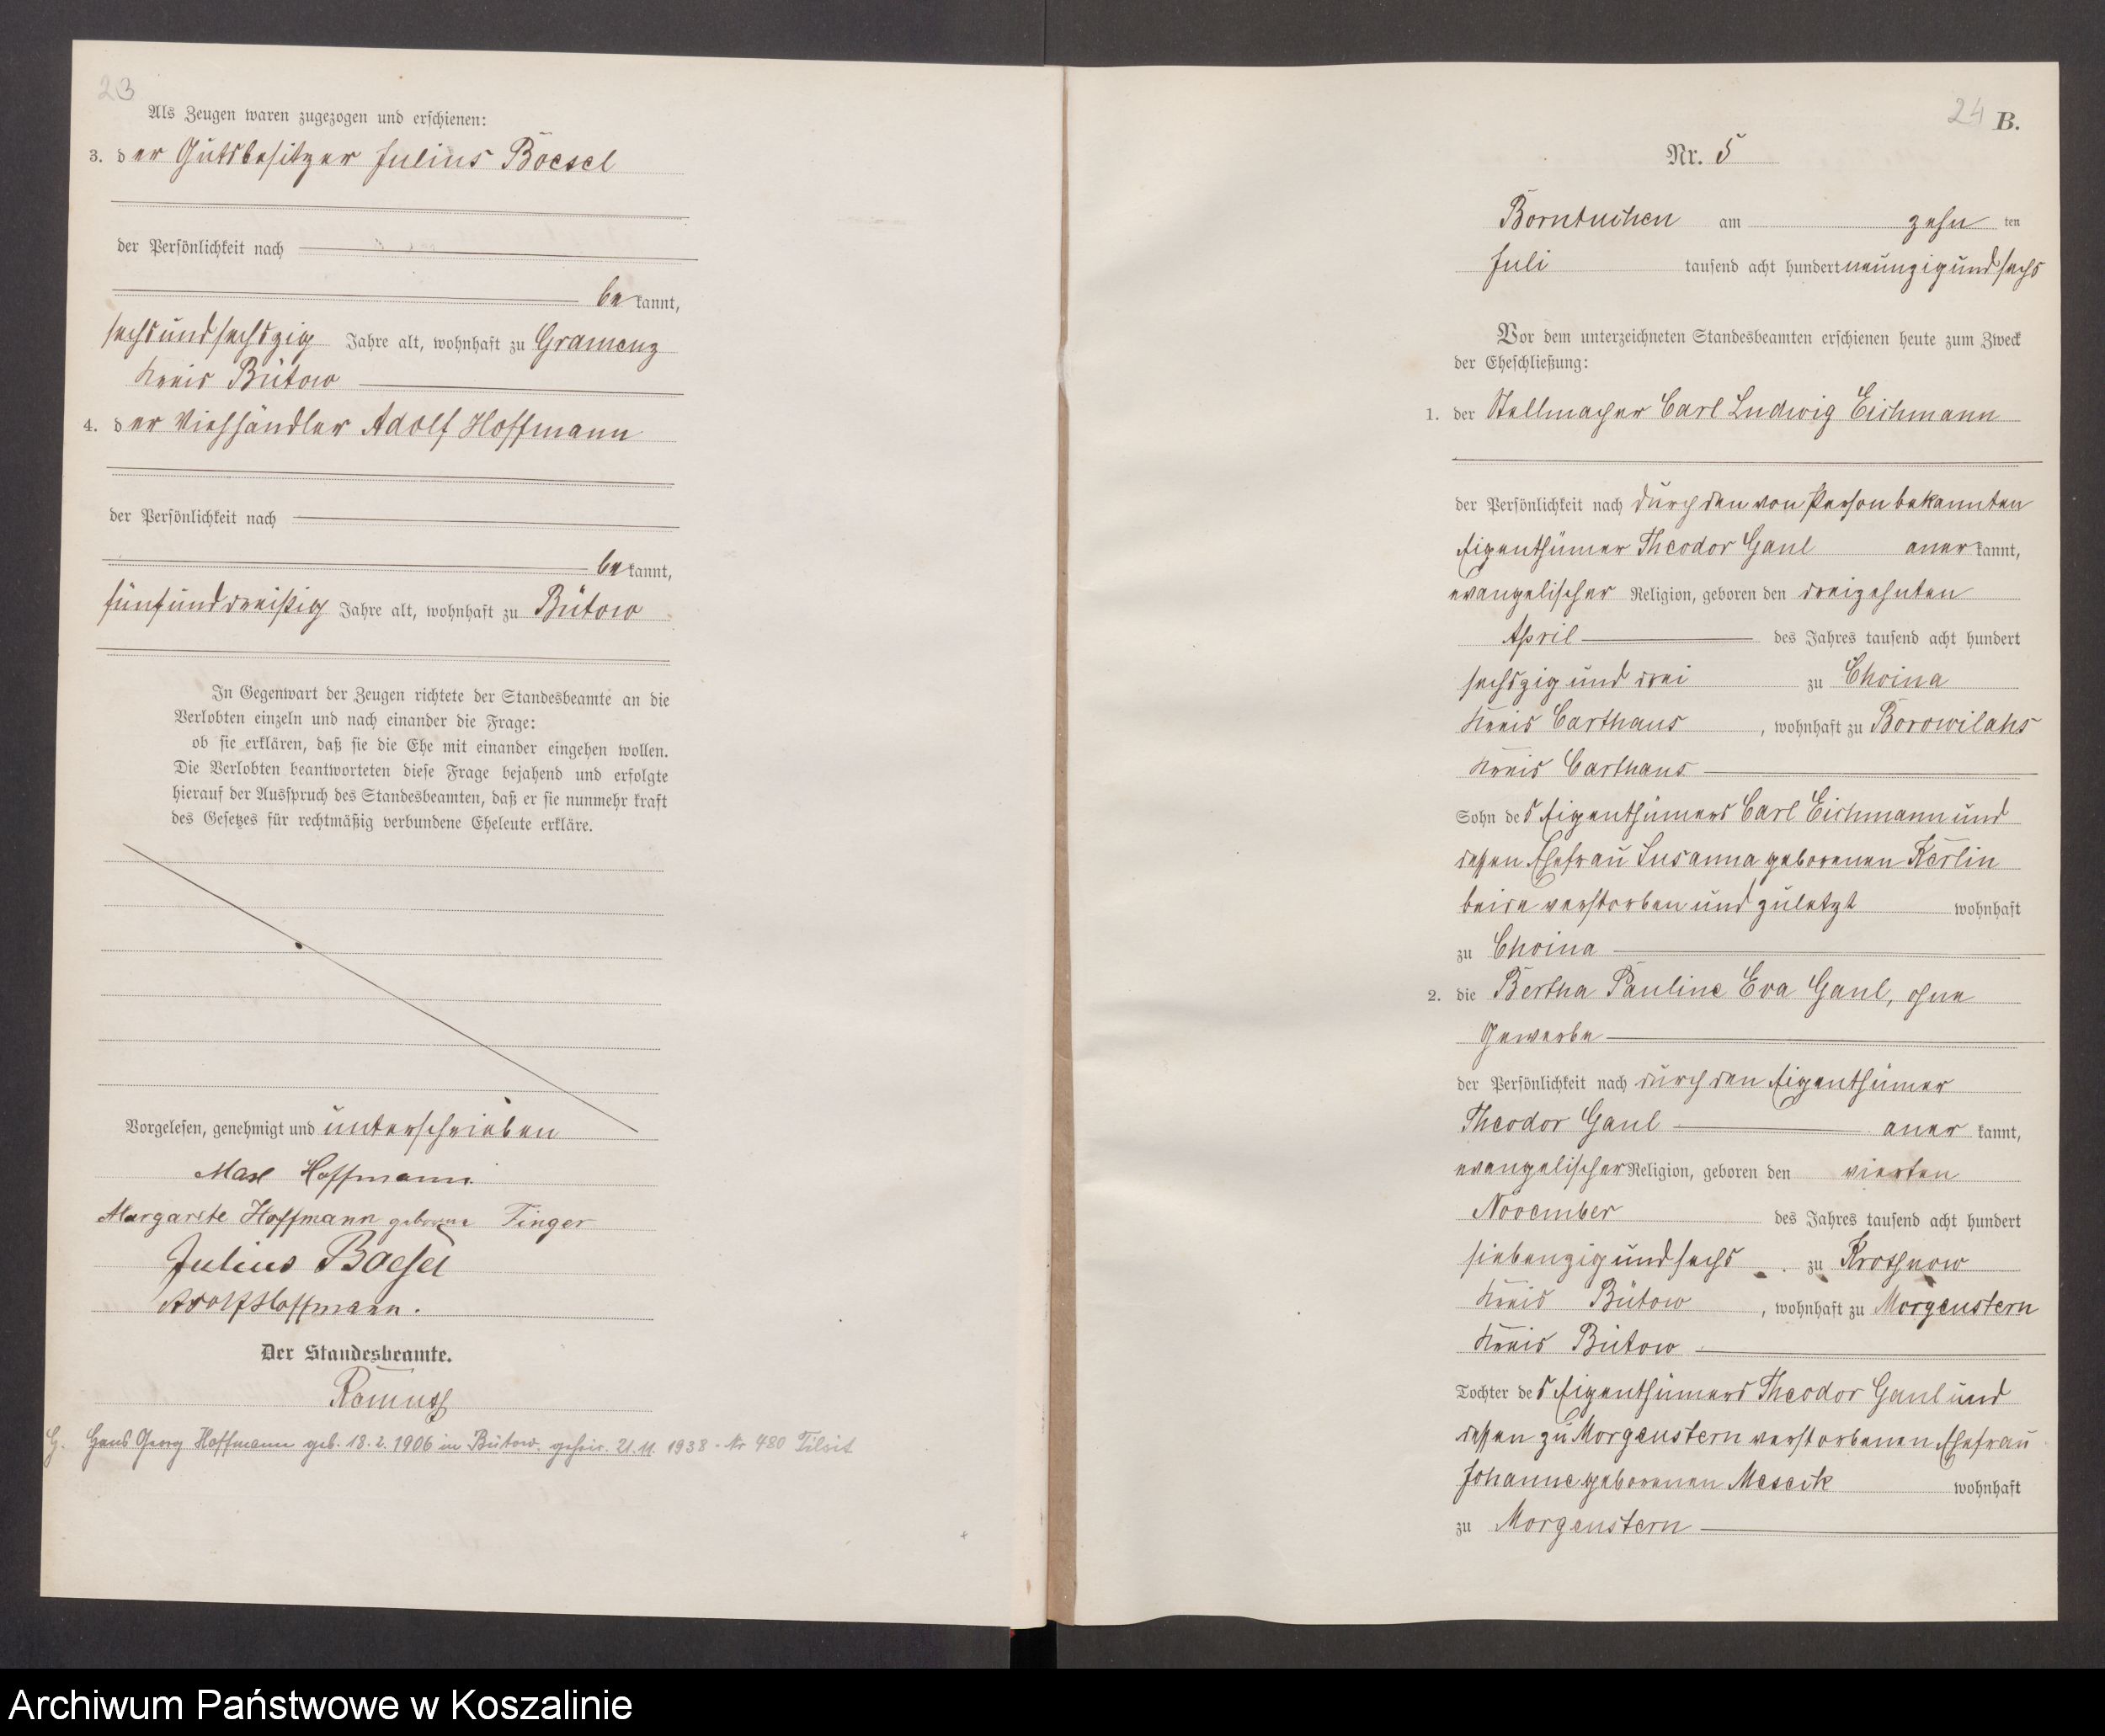 23
Als Zeugen waren zugezogen und erschienen:
3. der Gutsbesitzer Julius Boesel
der Persönlichkeit nach
bekannt,
sechsundsechszig Jahre alt, wohnhaft zu Gramenz
Kreis Bütow
4. der Viehhändler Adolf Hoffmann
der Persönlichkeit nach
bekannt,
fünfunddreißig Jahre alt, wohnhaft zu Bütow
In Gegenwart der Zeugen richtete der Standesbeamte an die
Verlobten einzeln und nach einander die Frage:
ob sie erklären, daß sie die Ehe mit einander eingehen wollen.
Die Verlobten beantworteten diese Frage bejahend und erfolgte
hierauf der Ausspruch des Standesbeamten, daß er sie nunmehr kraft
des Gesetzes für rechtmäßig verbundene Eheleute erkläre.
Vorgelesen, genehmigt und unterschrieben
Max Hoffmann
Margarete Hoffmann geborene Finger
Julius Boesel
Adolf Hoffmann.
Der Standesbeamte.
Ramuss
G. Hans Georg Hoffmann geb. 18.2.1906 in Bütow. geheir. 21.11.1938 - Nr 480 Tilsit
24 B.
Nr. 5
Borntuchen am zehnten
Juli tausend acht hundert neunzig und sechs
Vor dem unterzeichneten Standesbeamten erschienen heute zum Zweck
der Eheschließung:
1. der Stellmacher Carl Ludwig Eichmann
der Persönlichkeit nach durch den von Person bekannten
Eigenthümer Theodor Gaul anerkannt,
evangelischer Religion, geboren den dreizehnten
April des Jahres tausend acht hundert
sechszig und drei zu Choina
Kreis Carthaus, wohnhaft zu Borowilahs
Kreis Carthaus
Sohn des Eigenthümers Carl Eichmann und
dessen Ehefrau Susanna geborenen Kerlin
beide verstorben und zuletzt wohnhaft
zu Choina
2. die Bertha Pauline Eva Gaul, ohne
Gewerbe
der Persönlichkeit nach durch den Eigenthümer
Theodor Gaul anerkannt,
evangelischer Religion, geboren den vierten
November des Jahres tausend acht hundert
siebenzig und sechs zu Krossnow
Kreis Bütow, wohnhaft zu Morgenstern
Kreis Bütow
Tochter des Eigenthümers Theodor Gaul und
dessen zu Morgenstern verstorbenen Ehefrau
Johanne geborenen Mescik wohnhaft
zu Morgenstern
Archiwum Państwowe w Koszalinie